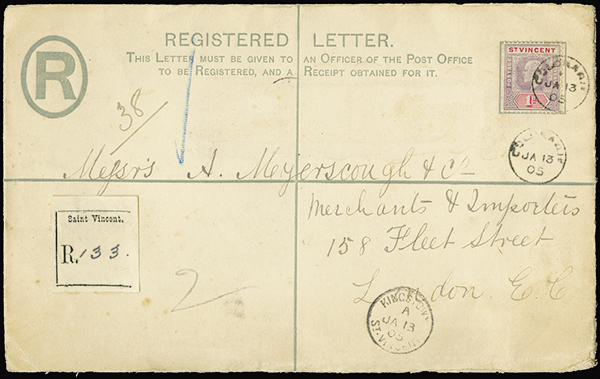 R
REGISTERED LETTER.
THIS LETTER MUST BE GIVEN TO AN OFFICER OF THE POST OFFICE
TO BE REGISTERED, AND A RECEIPT OBTAINED FOR IT.
ST VINCENT
POSTAGE
1d
JA 13
05
38
JA 13
05
Messrs A. Myerscough & Co
Merchants & Importers
158 Fleet Street
London. E.C
Saint Vincent.
R. 133.
2
KINGSTOWN
A
JA 13
05
ST. VINCENT